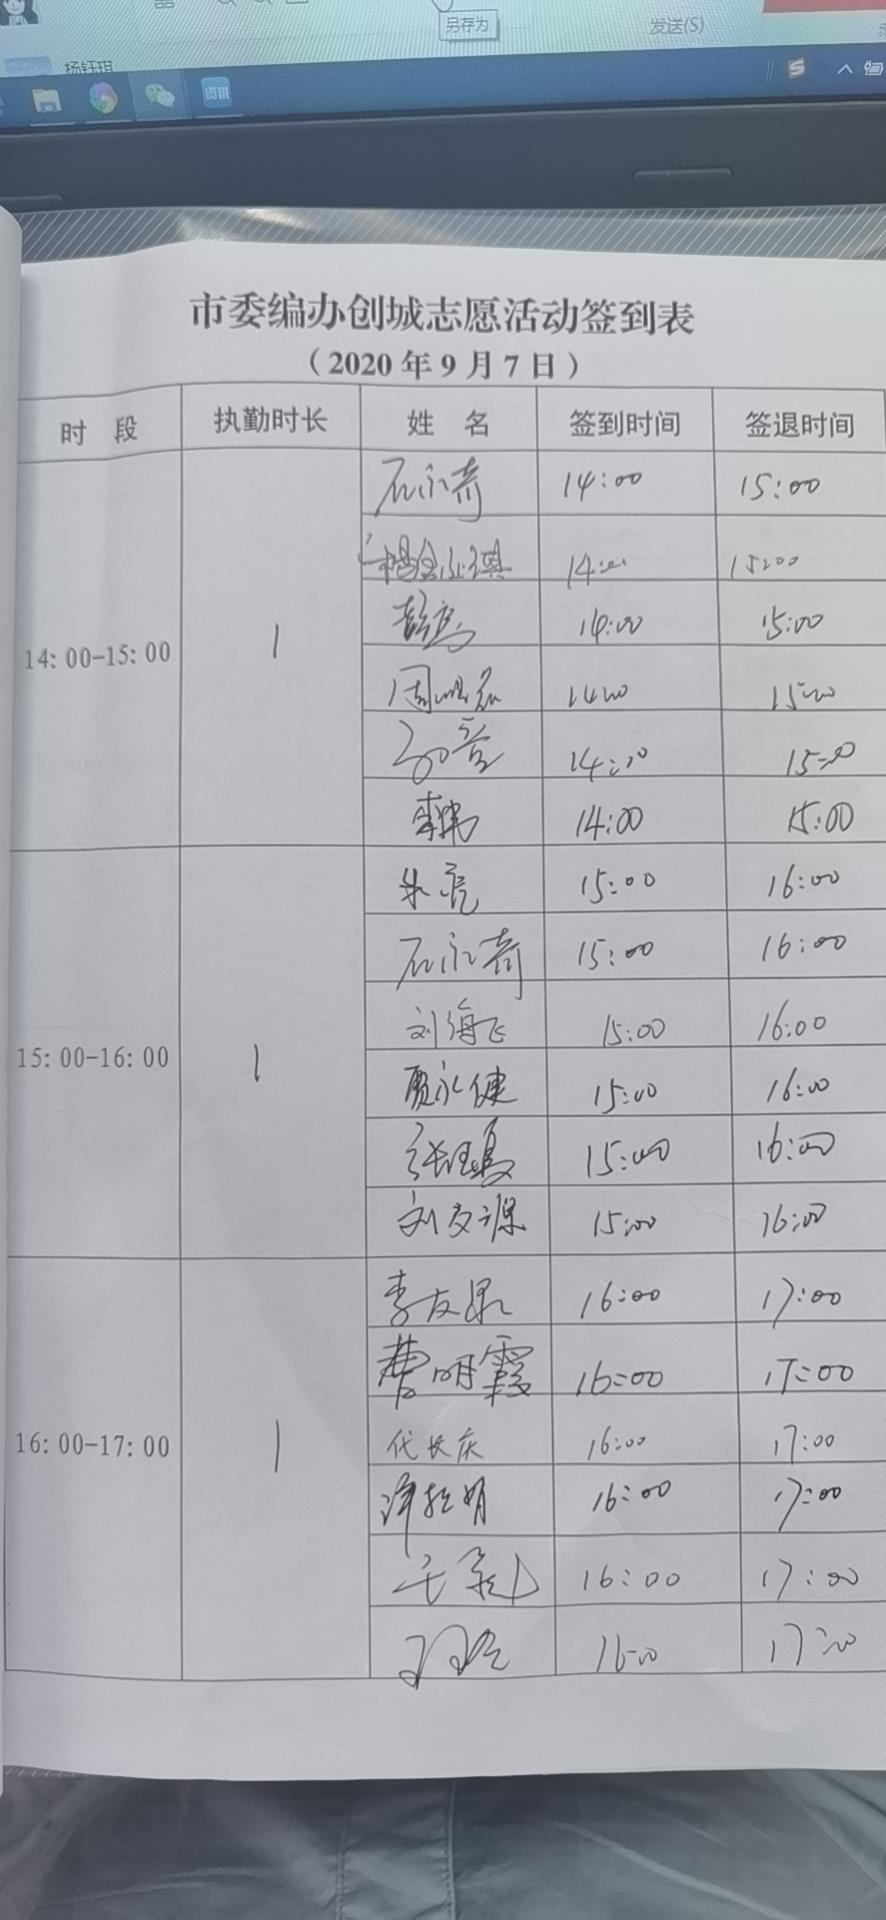 另存为
发送(S)
杨钰琪
资讯
市委编办创城志愿活动签到表
（2020 年 9 月 7 日）
时 段 执勤时长 姓 名 签到时间 签退时间
14:00-15:00 1 石永奇 14:00 15:00
14:00 15:00
彭彦 14:00 15:00
14:00 15:00
14:00 15:00
李伟 14:00 15:00
15:00-16:00 1 朱亮 15:00 16:00
石永奇 15:00 16:00
刘海飞 15:00 16:00
贾永健 15:00 16:00
15:00 16:00
刘文源 15:00 16:00
16:00-17:00 1 李友泉 16:00 17:00
曹明霞 16:00 17:00
代长庆 16:00 17:00
16:00 17:00
16:00 17:00
16:00 17:00